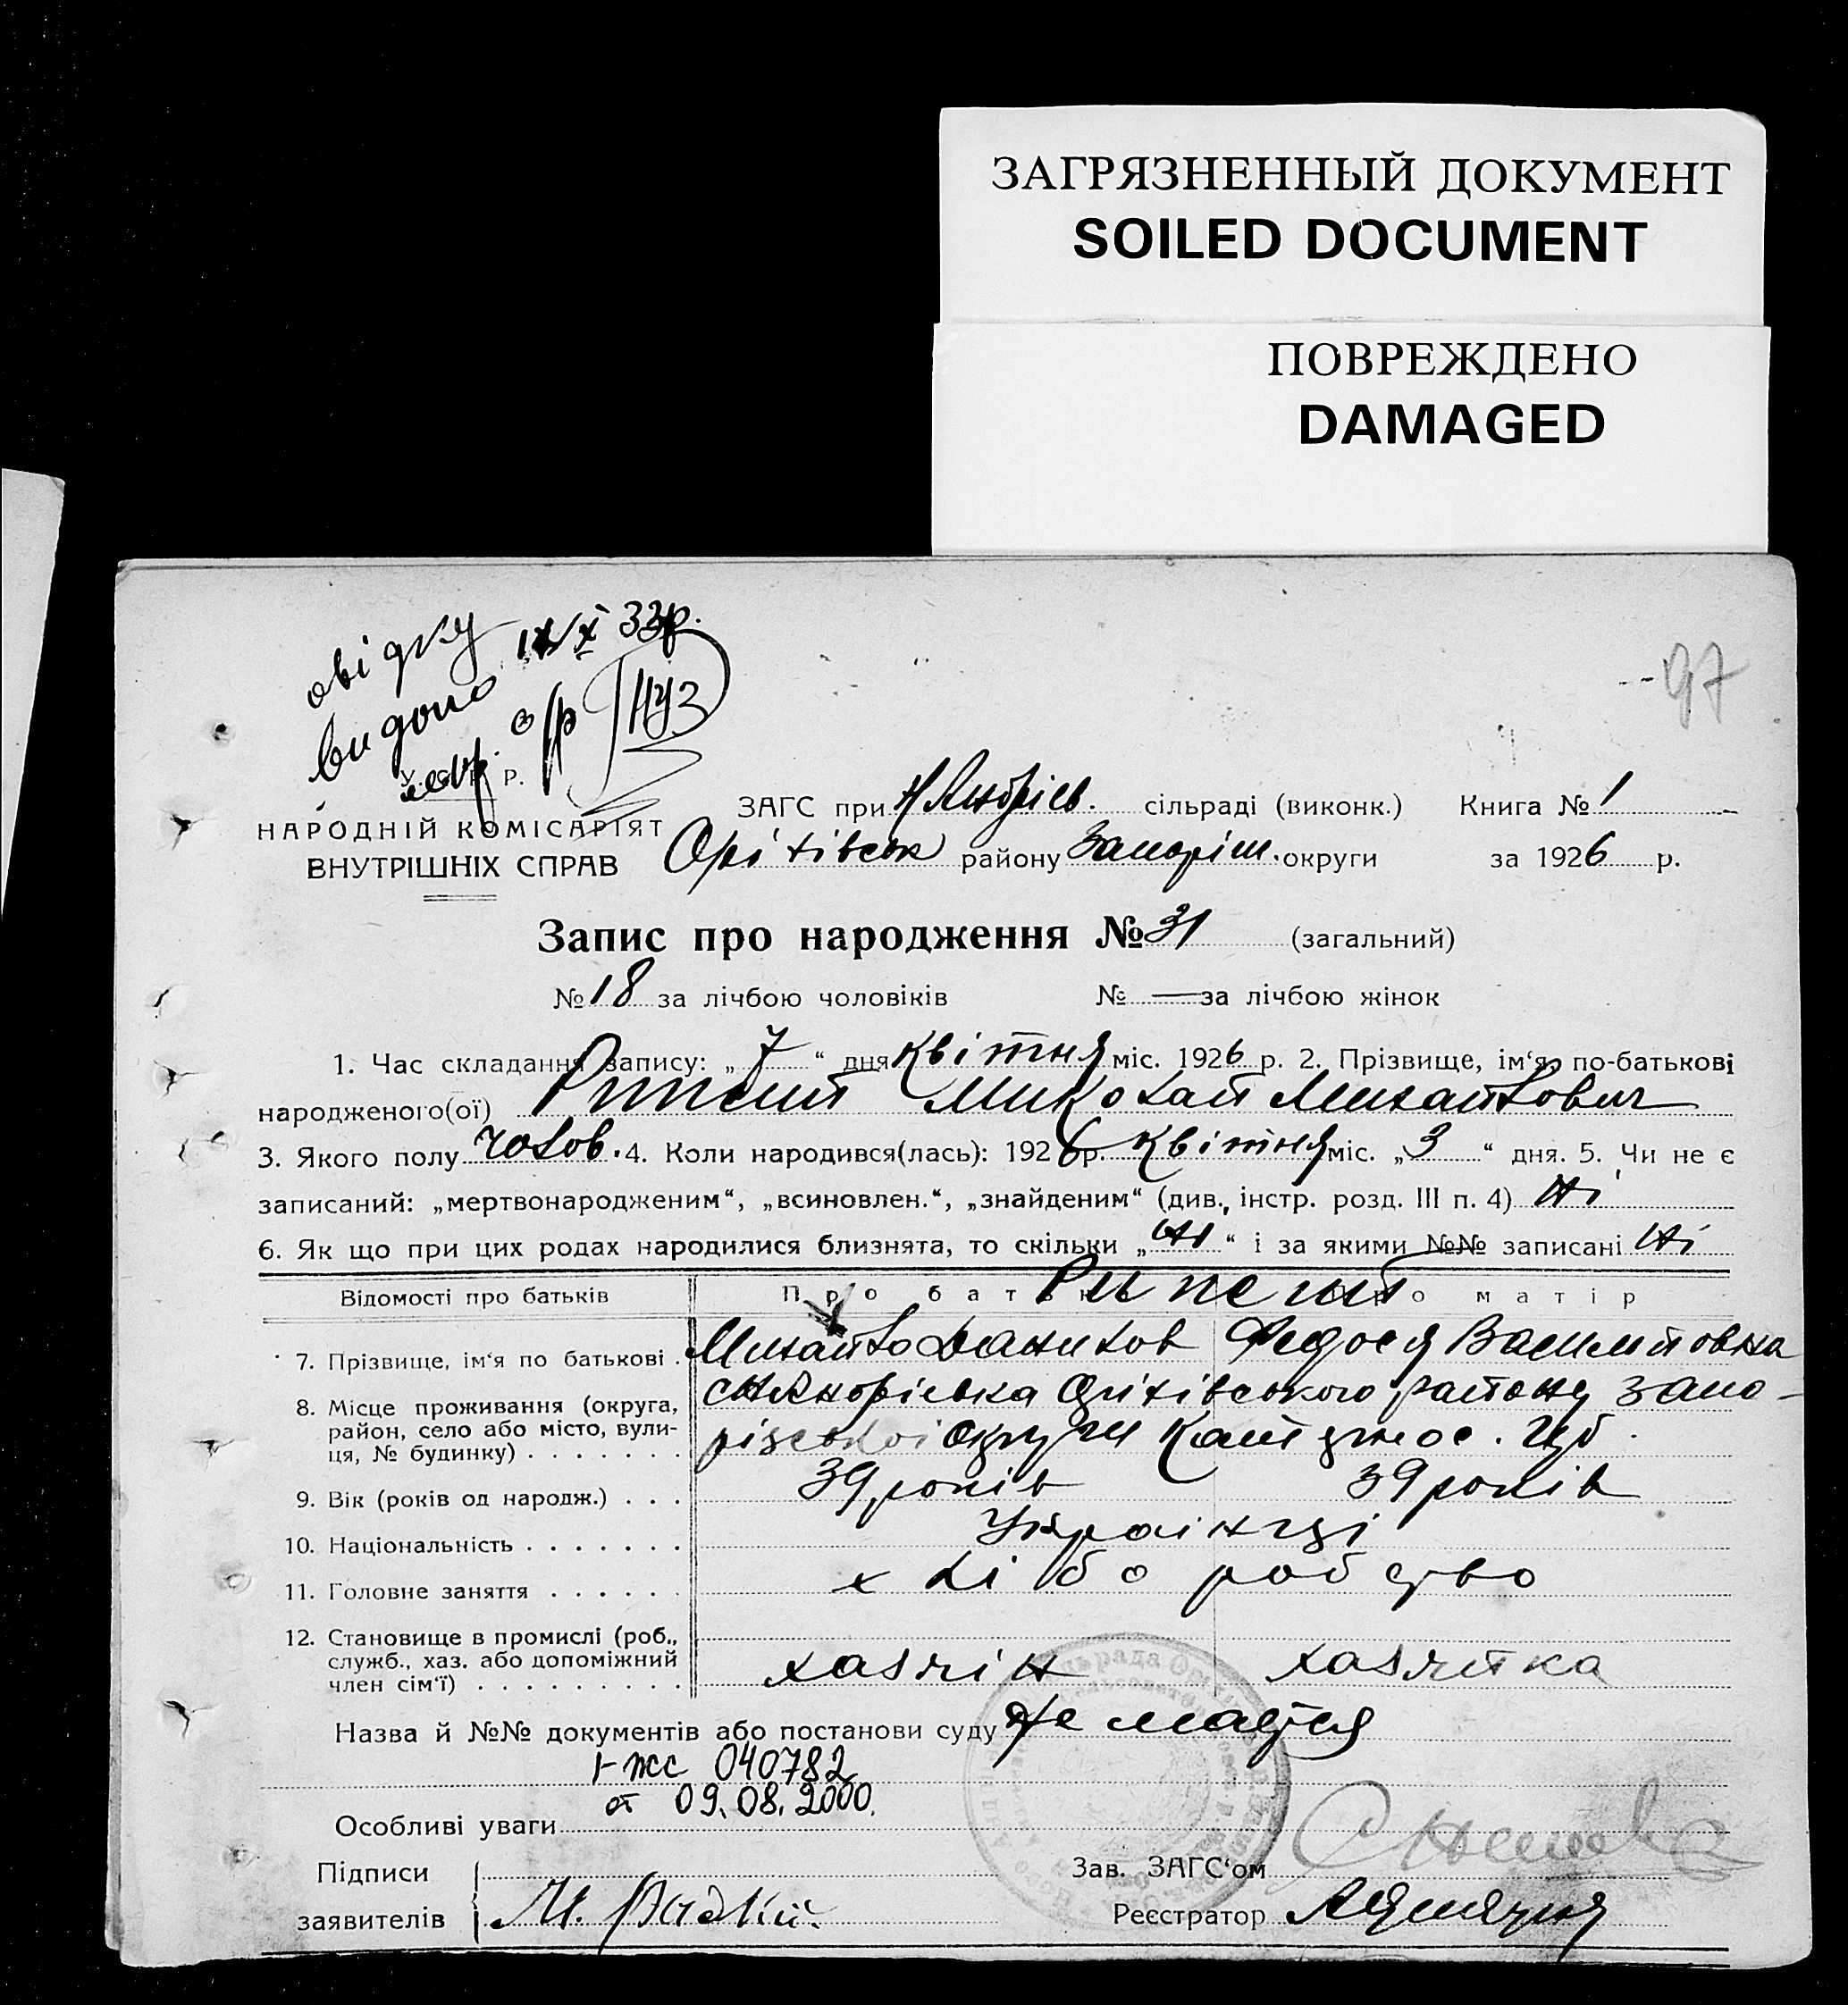 ЗАГРЯЗНЕННЫЙ ДОКУМЕНТ
SOILED DOCUMENT
ПОВРЕЖДЕНО
DAMAGED
97
овідку
видано Х 33р.
Р.
ЗАГС при Н Андрієв. сільраді (виконк.) Книга № 1
НАРОДНІЙ КОМІСАРІЯТ
ВНУТРІШНІХ СПРАВ
Оріхівськ району Запоріш. округи за 1926 р.
Запис про народження № 31 (загальний)
№ 18 за лічбою чоловіків № — за лічбою жінок
1. Час складання запису: „7“ дня квітня міс. 1926 р. 2. Прізвище, ім‘я, по-батькові
народженого(ої) Миколай Михайлович
3. Якого полу чолов. 4. Коли народився(лась): 1926 р. квітня міс. „3“ дня. 5. Чи не є
записаний: „мертвонародженим“, „всиновлен.“, „знайденим“ (див. інстр. розд. III п. 4) Ні
6. Як що при цих родах народилися близнята, то скільки „Ні“ і за якими №№ записані Ні
Відомості про батьків
7. Прізвище, ім‘я по батькові . Михайло Данилов Федося Василитовна
8. Місце проживання (округа, район, село або місто, вулиця, № будинку) . . . . . . . с Н Андрієвка Оріхівського району Запо-
різської округи Катеринос. Губ.
9. Вік (років од народж.) . . . 39 років 39 років
10. Національність . . . . . . . Українці
11. Головне заняття . . . . . . хлібо робство
12. Становище в промислі (роб., служб., хаз. або допоміжний член сім‘ї) . . . . . . . . . хазяін хазяйка
Назва й №№ документів або постанови суду Не мається
I-жс 040782
от 09.08.2000.
Особливі уваги
Підписи
заявителів М.
Зав. ЗАГС‘ом
Реєстратор